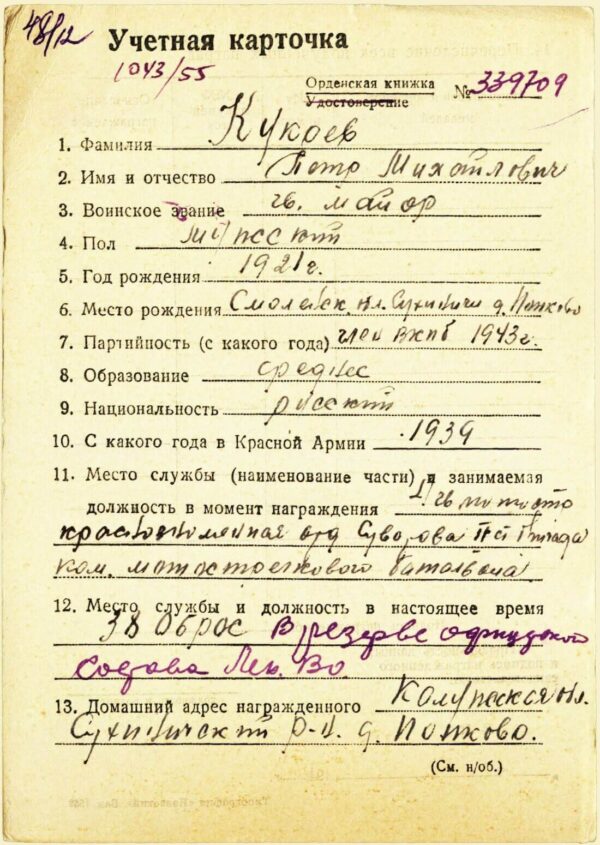 48/12
Учетная карточка
1043/55
Орденская книжка
Удостоверение
№ 339709
1. Фамилия Кукаев
2. Имя и отчество Петр Михайлович
3. Воинское звание гв. майор
4. Пол мужской
5. Год рождения 1921 г.
6. Место рождения Смоленск. обл. Сухиничи д. Попково
7. Партийность (с какого года) член вкпб 1943 г.
8. Образование среднее
9. Национальность русский
10. С какого года в Красной Армии 1939
11. Место службы (наименование части) и занимаемая
должность в момент награждения гв мото
краснознаменная орд Суворова II ст бригада
ком. мотострелкового батальона
12. Место службы и должность в настоящее время
38 В резерве офицерского
состава Лен. Во.
13. Домашний адрес награжденного Калужская обл.
Сухиничский р-н. д. Попково.
(См. н/об.)